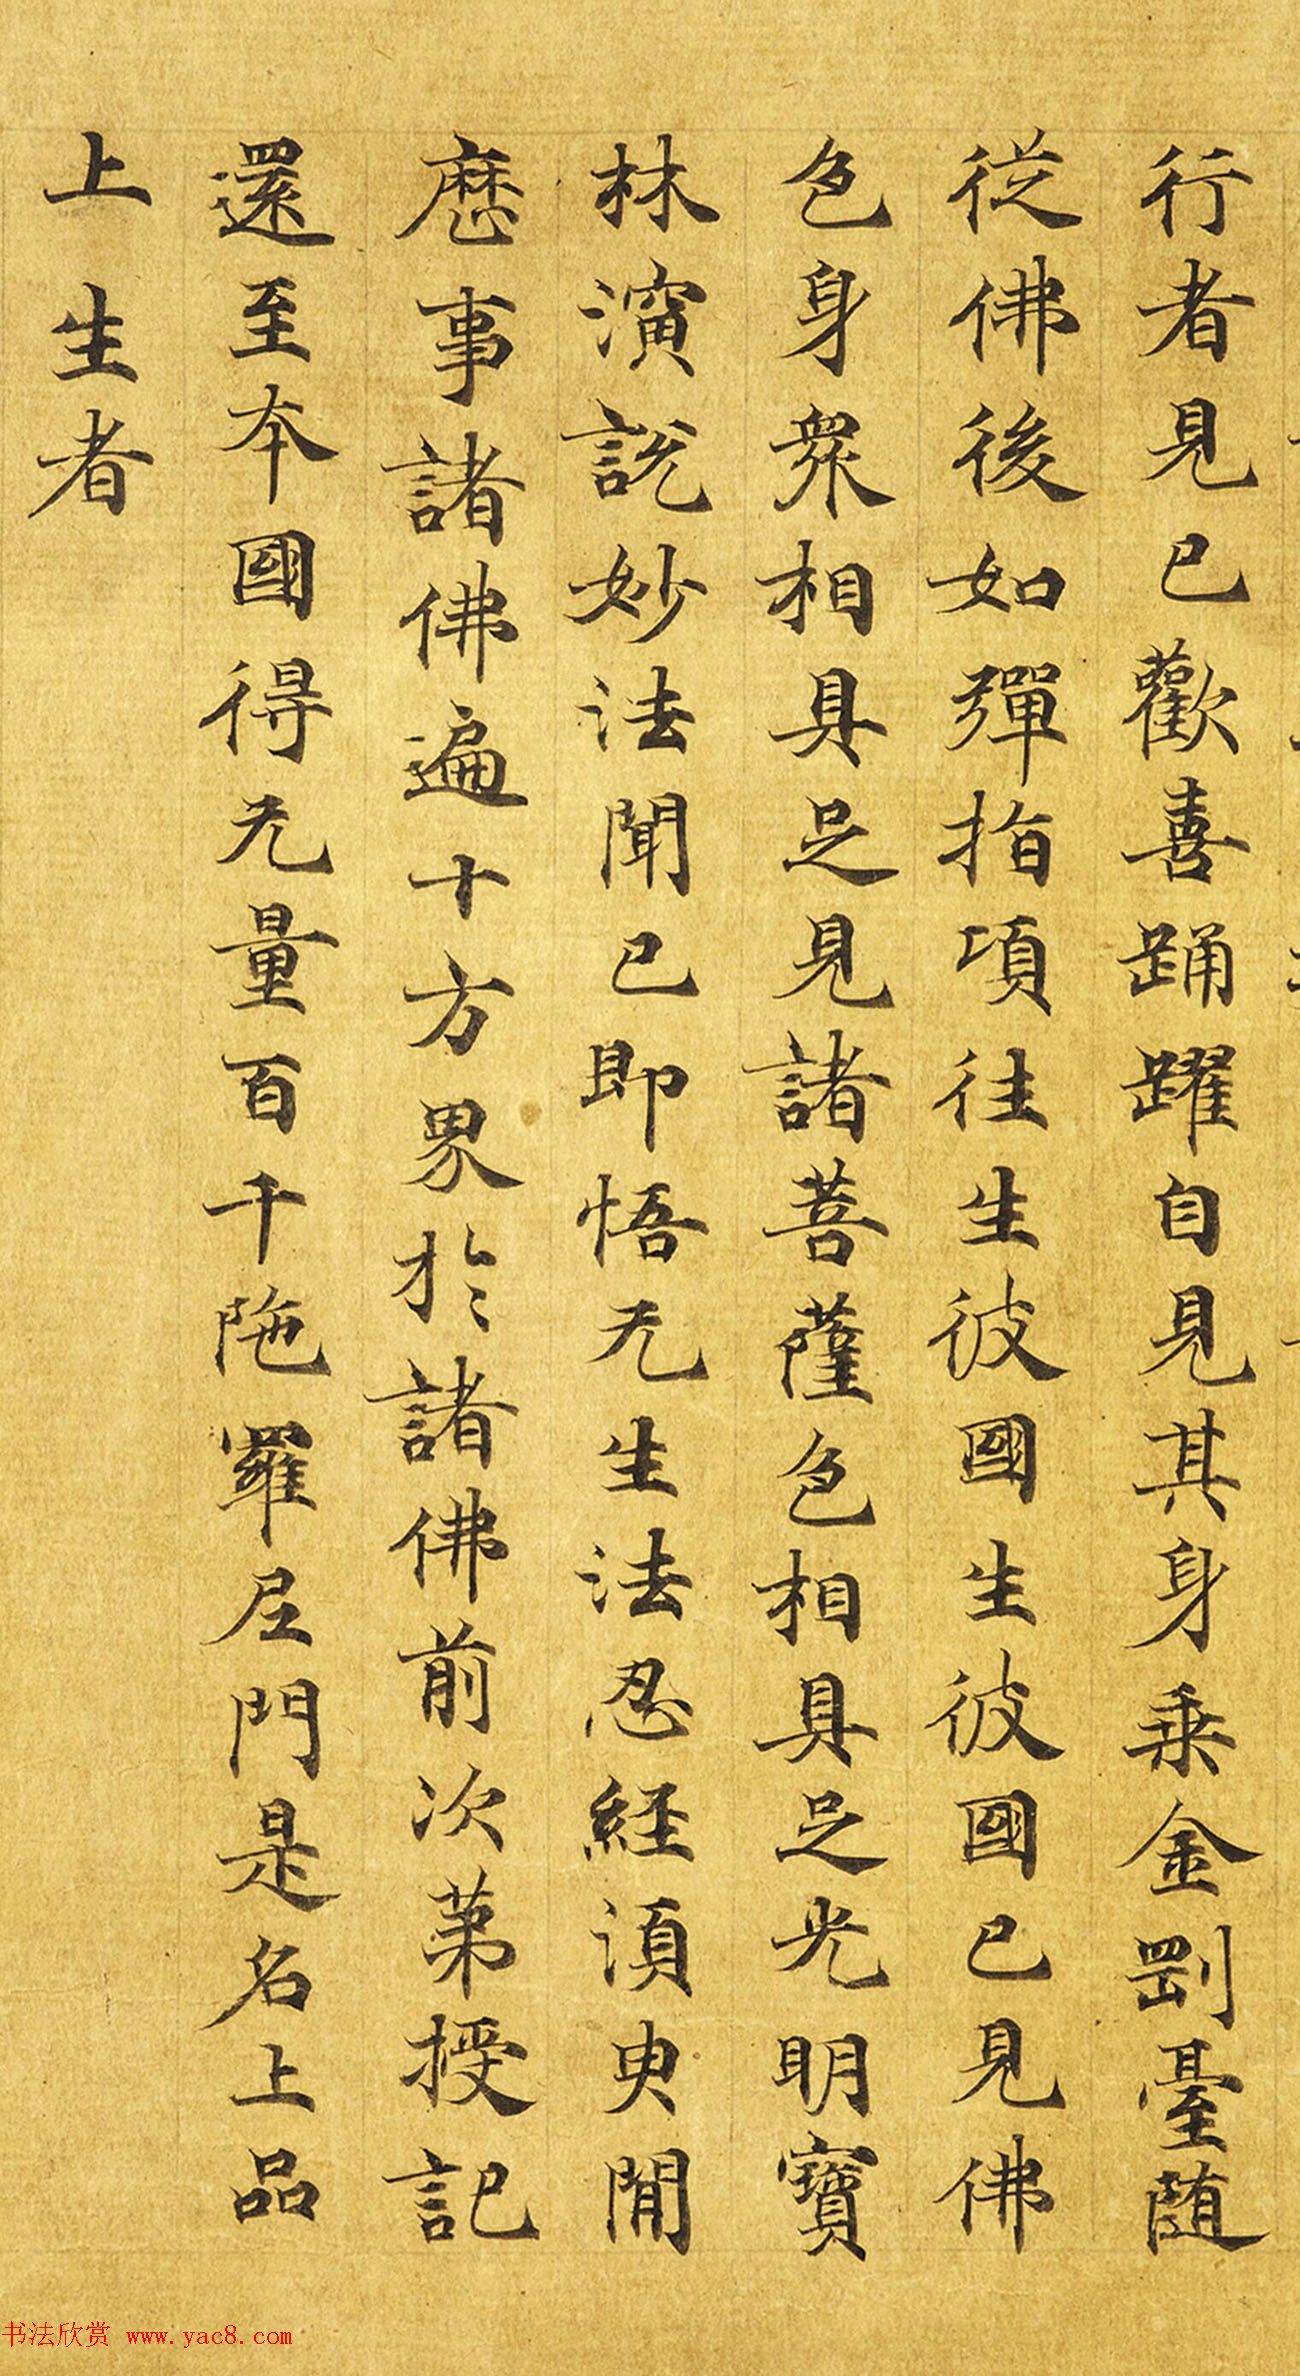 行者見已歡喜踊躍自見其身乗金剛臺随
従佛後如彈指頃往生彼國生彼國已見佛
色身衆相具足見諸菩薩色相具足光明寶
林演説妙法聞已即悟无生法忍經湏臾閒
歷事諸佛遍十方界於諸佛前次第授記
還至本國得无量百千陁羅尼門是名上品
上生者
书法欣赏 www.yac8.com